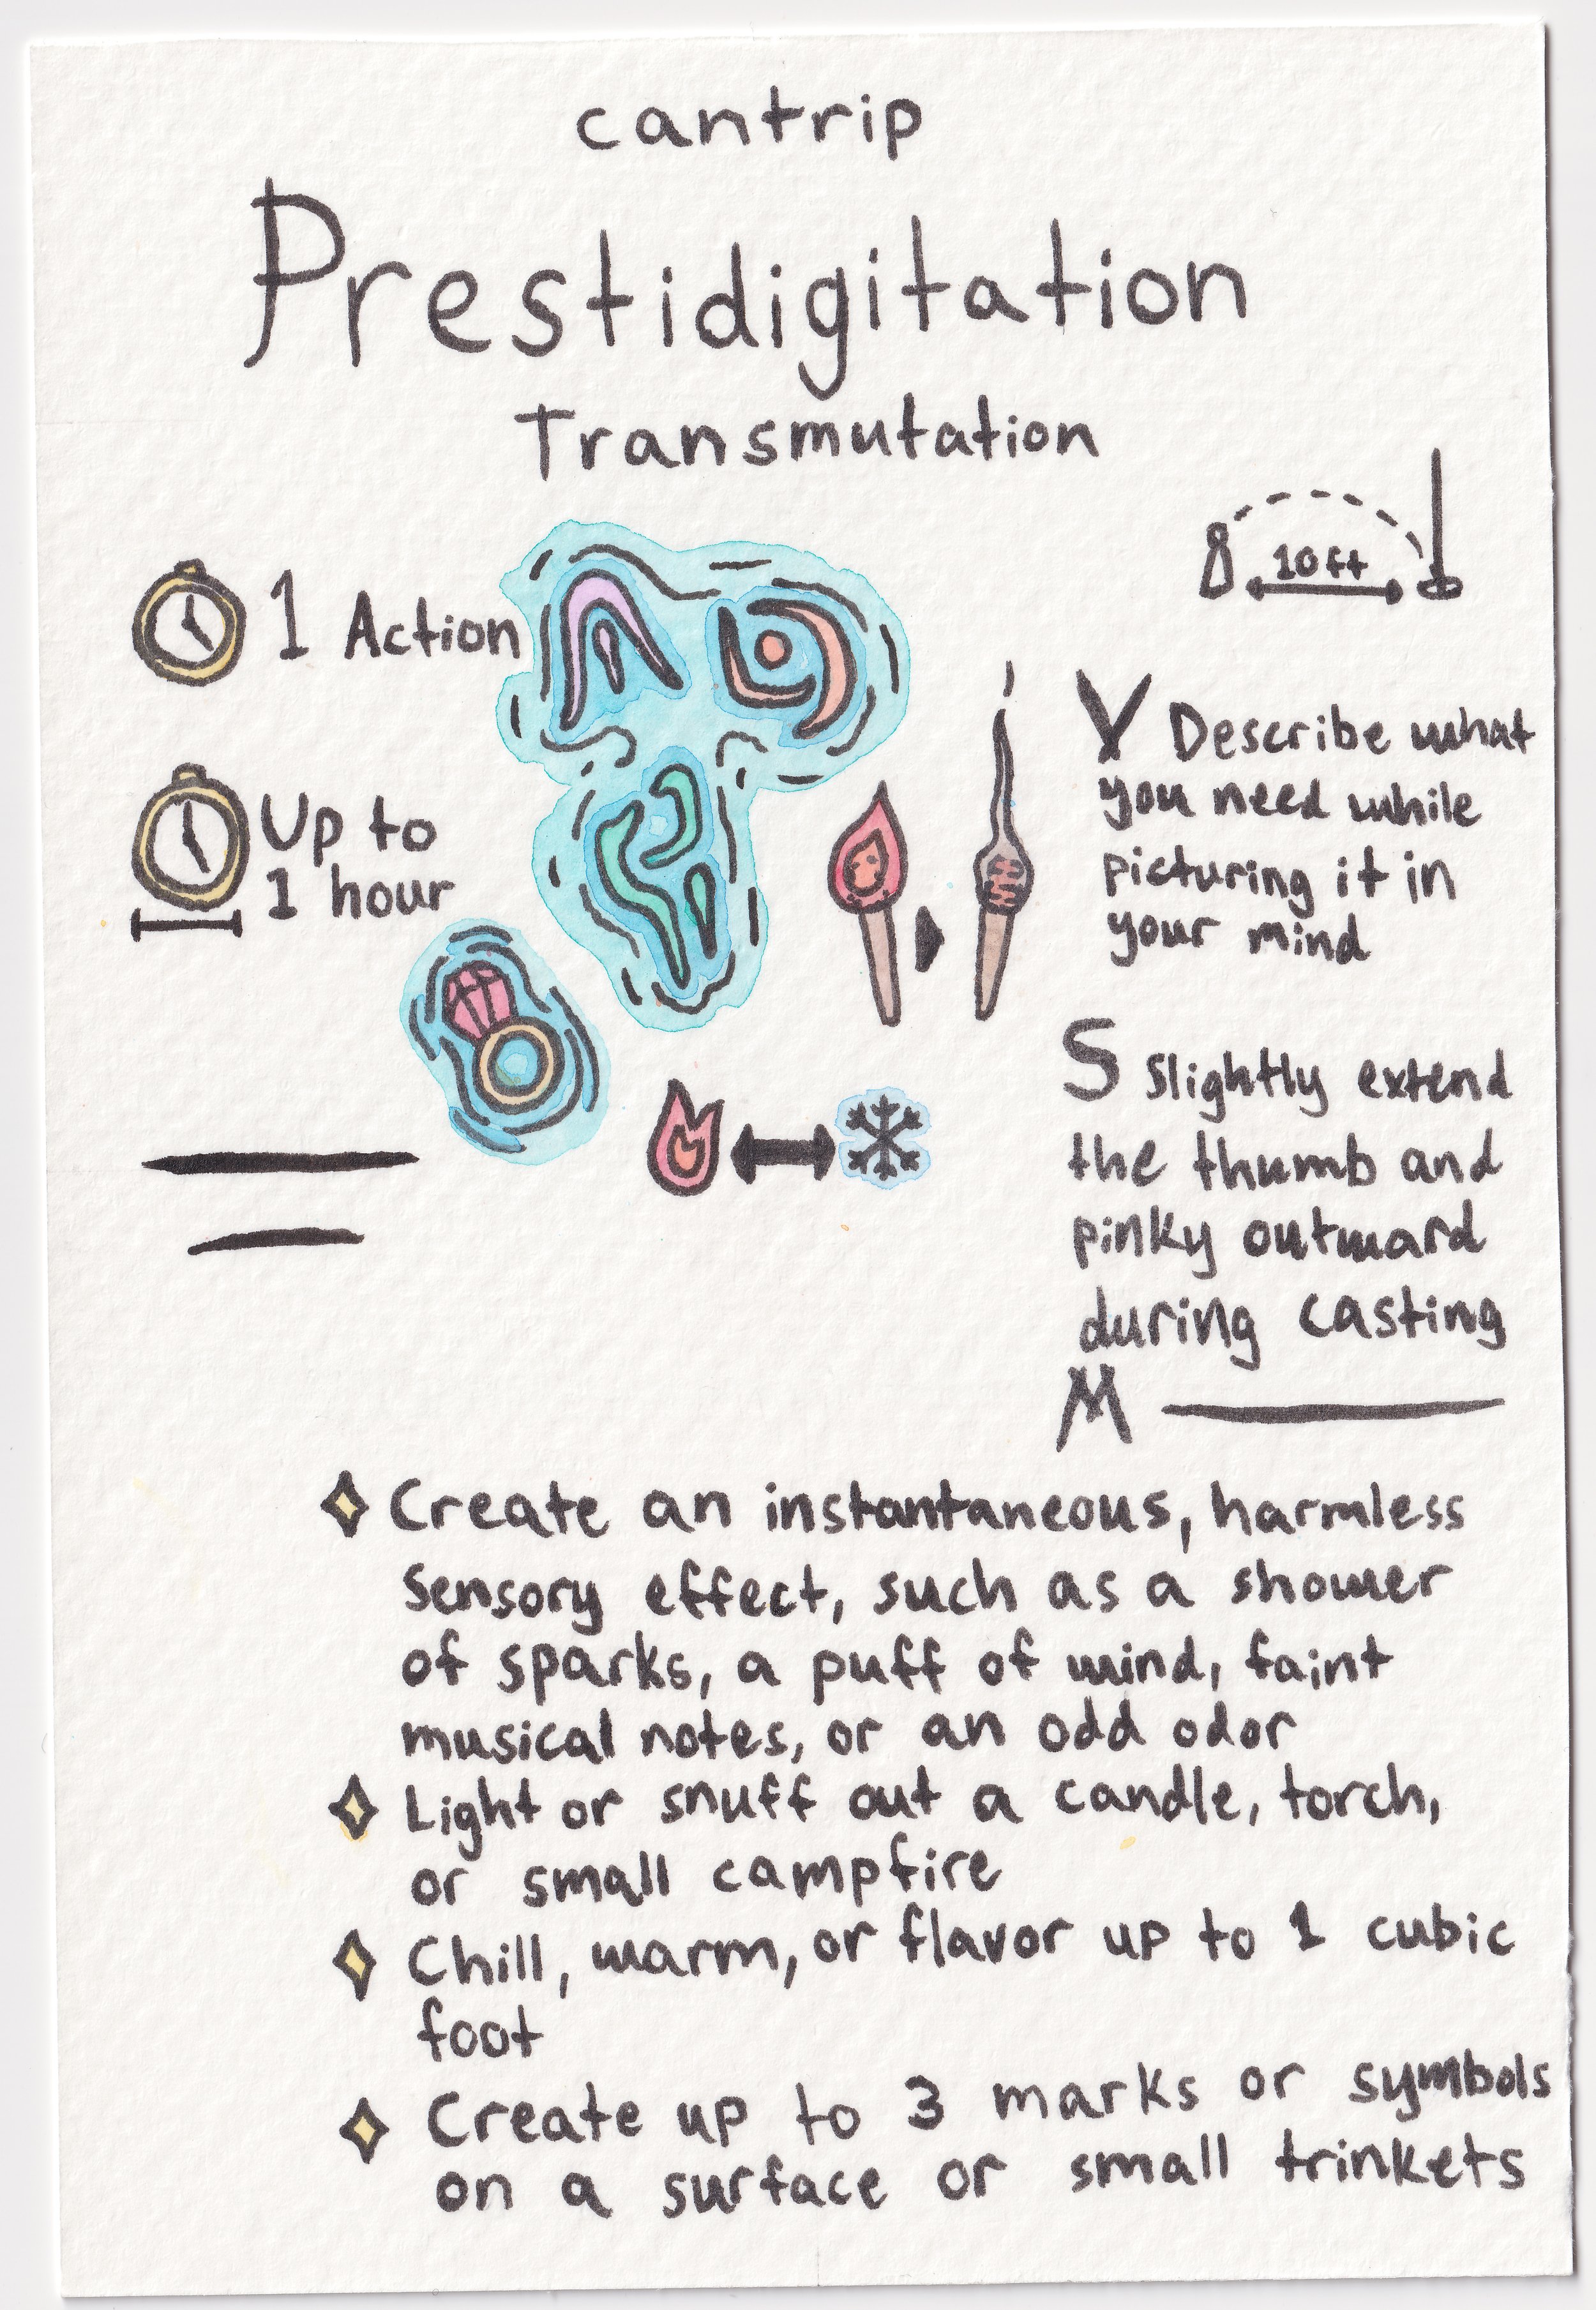 cantrip
Prestidigitation
Transmutation
1 Action
10ft
Up to
1 hour
V Describe what
you need while
picturing it in
your mind
S Slightly extend
the thumb and
pinky outward
during casting
M
Create an instantaneous, harmless
sensory effect, such as a shower
of sparks, a puff of wind, faint
musical notes, or an odd odor
Light or snuff out a candle, torch,
or small campfire
Chill, warm, or flavor up to 1 cubic
foot
Create up to 3 marks or symbols
on a surface or small trinkets